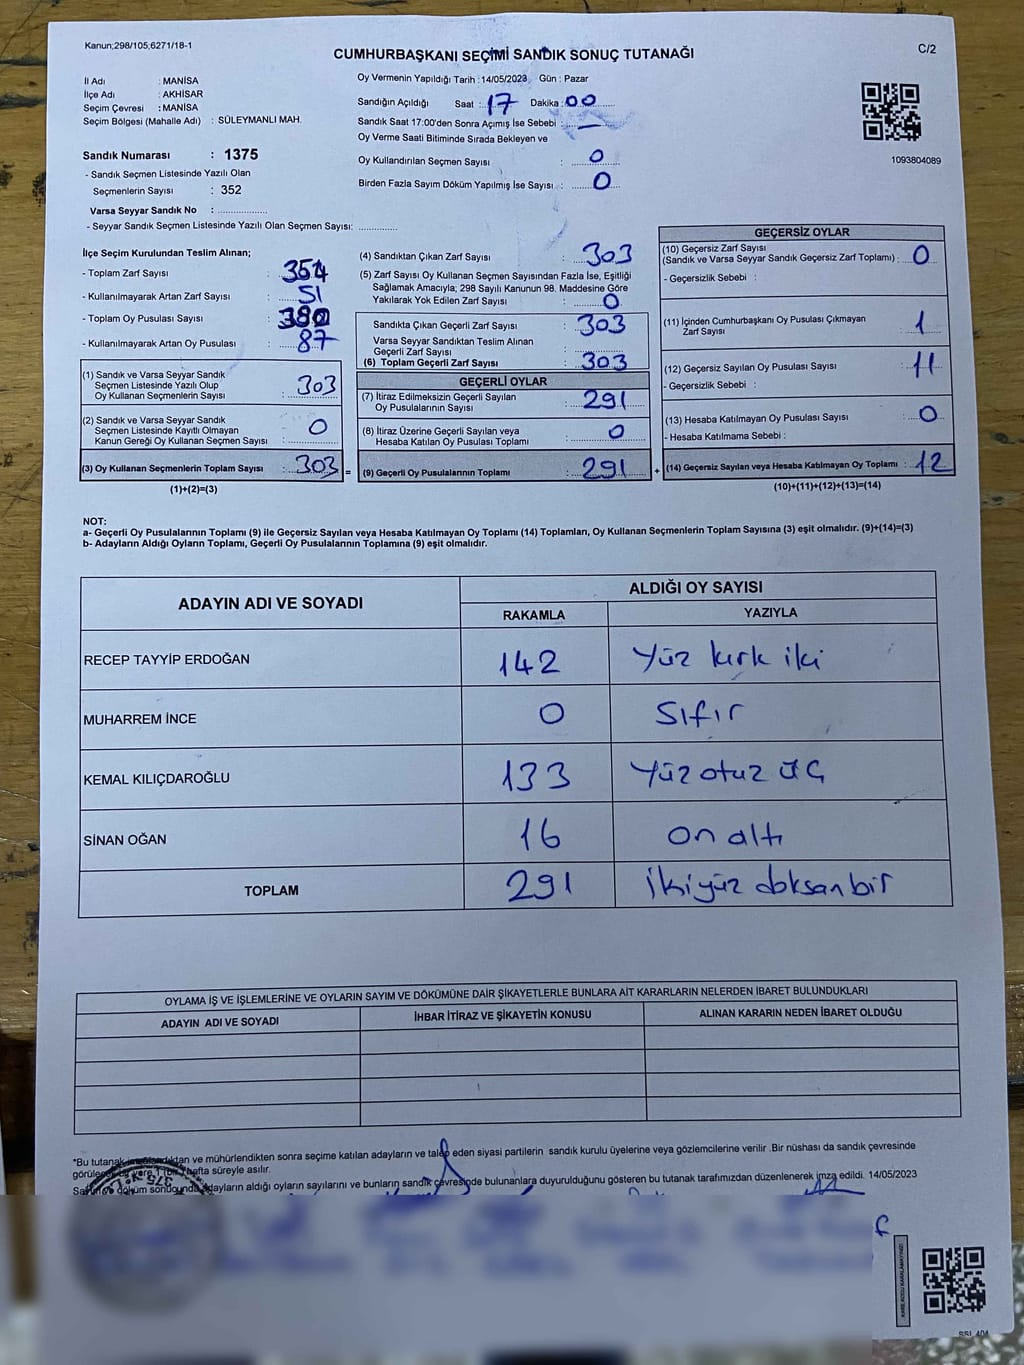 Kanun;298/105;6271/18-1
C/2
CUMHURBAŞKANI SEÇİMİ SANDIK SONUÇ TUTANAĞI
İl Adı : MANİSA
İlçe Adı : AKHİSAR
Seçim Çevresi : MANİSA
Seçim Bölgesi (Mahalle Adı) : SÜLEYMANLI MAH.
Oy Vermenin Yapıldığı Tarih : 14/05/2023 Gün : Pazar
Sandığın Açıldığı Saat : 17 Dakika : 00
Sandık Saat 17:00'den Sonra Açımış İse Sebebi : —
Oy Verme Saati Bitiminde Sırada Bekleyen ve
Oy Kullandırılan Seçmen Sayısı : 0
Birden Fazla Sayım Döküm Yapılmış İse Sayısı : 0
1093804089
Sandık Numarası : 1375
- Sandık Seçmen Listesinde Yazılı Olan
Seçmenlerin Sayısı : 352
Varsa Seyyar Sandık No :
- Seyyar Sandık Seçmen Listesinde Yazılı Olan Seçmen Sayısı:
İlçe Seçim Kurulundan Teslim Alınan;
- Toplam Zarf Sayısı : 354
- Kullanılmayarak Artan Zarf Sayısı : 51
- Toplam Oy Pusulası Sayısı :
- Kullanılmayarak Artan Oy Pusulası : 87
(1) Sandık ve Varsa Seyyar Sandık
Seçmen Listesinde Yazılı Olup
Oy Kullanan Seçmenlerin Sayısı : 303
(2) Sandık ve Varsa Seyyar Sandık
Seçmen Listesinde Kayıtlı Olmayan
Kanun Gereği Oy Kullanan Seçmen Sayısı : 0
(3) Oy Kullanan Seçmenlerin Toplam Sayısı : 303 =
(1)+(2)=(3)
(4) Sandıktan Çıkan Zarf Sayısı : 303
(5) Zarf Sayısı Oy Kullanan Seçmen Sayısından Fazla İse, Eşitliği
Sağlamak Amacıyla; 298 Sayılı Kanunun 98. Maddesine Göre
Yakılarak Yok Edilen Zarf Sayısı : 0
Sandıkta Çıkan Geçerli Zarf Sayısı : 303
Varsa Seyyar Sandıktan Teslim Alınan
Geçerli Zarf Sayısı :
(6) Toplam Geçerli Zarf Sayısı : 303
GEÇERLİ OYLAR
(7) İtiraz Edilmeksizin Geçerli Sayılan
Oy Pusulalarının Sayısı : 291
(8) İtiraz Üzerine Geçerli Sayılan veya
Hesaba Katılan Oy Pusulası Toplamı : 0
(9) Geçerli Oy Pusulalarının Toplamı : 291 +
GEÇERSİZ OYLAR
(10) Geçersiz Zarf Sayısı
(Sandık ve Varsa Seyyar Sandık Geçersiz Zarf Toplamı) : 0
- Geçersizlik Sebebi :
(11) İçinden Cumhurbaşkanı Oy Pusulası Çıkmayan
Zarf Sayısı : 1
(12) Geçersiz Sayılan Oy Pusulası Sayısı : 11
- Geçersizlik Sebebi :
(13) Hesaba Katılmayan Oy Pusulası Sayısı : 0
- Hesaba Katılmama Sebebi :
(14) Geçersiz Sayılan veya Hesaba Katılmayan Oy Toplamı : 12
(10)+(11)+(12)+(13)=(14)
NOT:
a- Geçerli Oy Pusulalarının Toplamı (9) ile Geçersiz Sayılan veya Hesaba Katılmayan Oy Toplamı (14) Toplamları, Oy Kullanan Seçmenlerin Toplam Sayısına (3) eşit olmalıdır. (9)+(14)=(3)
b- Adayların Aldığı Oyların Toplamı, Geçerli Oy Pusulalarının Toplamına (9) eşit olmalıdır.
ADAYIN ADI VE SOYADI ALDIĞI OY SAYISI
RAKAMLA YAZIYLA
RECEP TAYYİP ERDOĞAN 142 Yüz kırk iki
MUHARREM İNCE 0 Sıfır
KEMAL KILIÇDAROĞLU 133 Yüz otuz üç
SİNAN OĞAN 16 on altı
TOPLAM 291 İkiyüz doksan bir
OYLAMA İŞ VE İŞLEMLERİNE VE OYLARIN SAYIM VE DÖKÜMÜNE DAİR ŞİKAYETLERLE BUNLARA AİT KARARLARIN NELERDEN İBARET BULUNDUKLARI
ADAYIN ADI VE SOYADI İHBAR İTİRAZ VE ŞİKAYETİN KONUSU ALINAN KARARIN NEDEN İBARET OLDUĞU
*Bu tutanak ve mühürlendikten sonra seçime katılan adayların ve talep eden siyasi partilerin sandık kurulu üyelerine veya gözlemcilerine verilir .Bir nüshası da sandık çevresinde
hafta süreyle asılır.
adayların aldığı oyların sayılarını ve bunların sandık çevresinde bulunanlara duyurulduğunu gösteren bu tutanak tarafımızdan düzenlenerek imza edildi. 14/05/2023